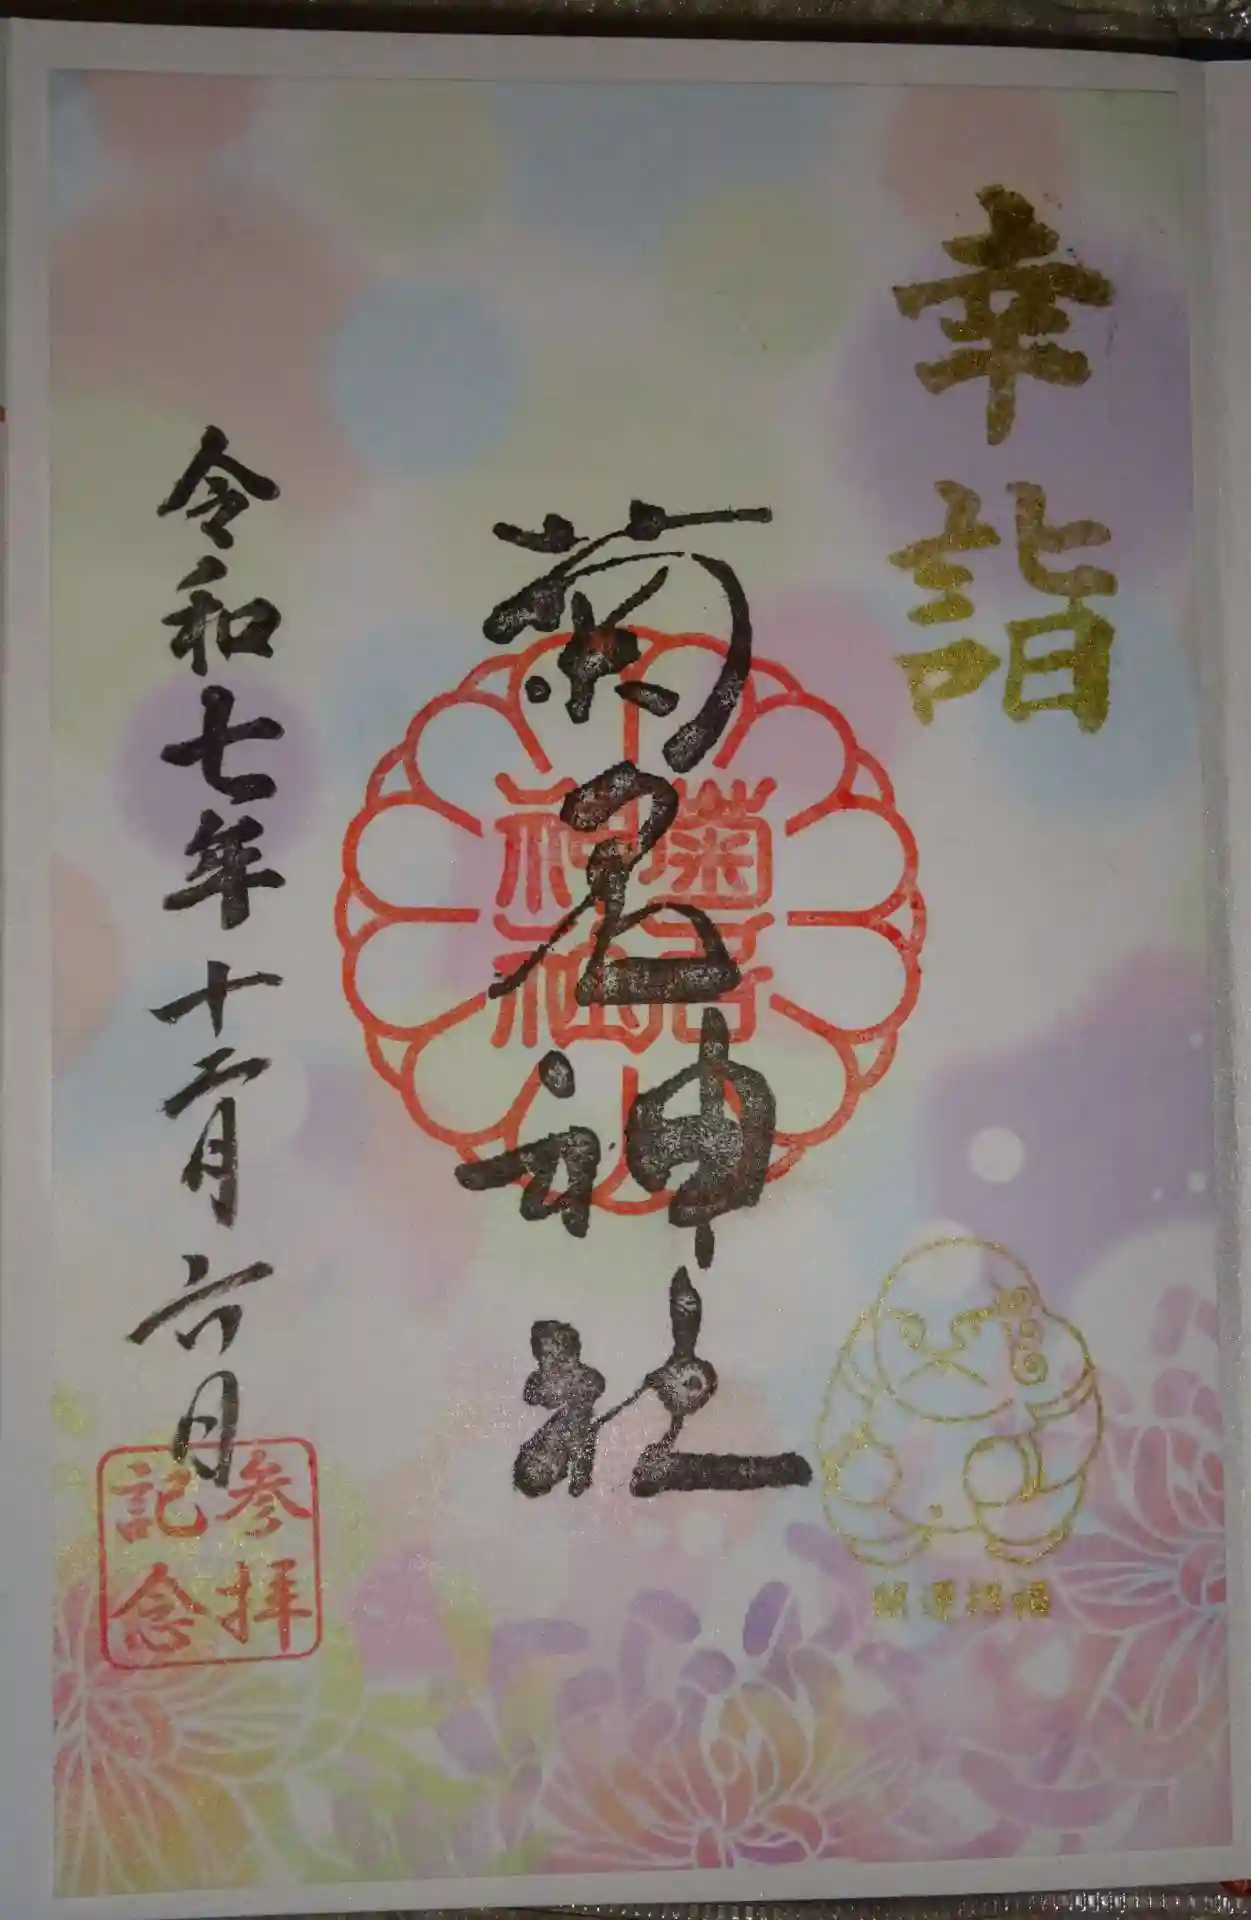 幸詣
菊名神社
菊名
神社
開運招福
令和七年十二月六日
参拝
記念